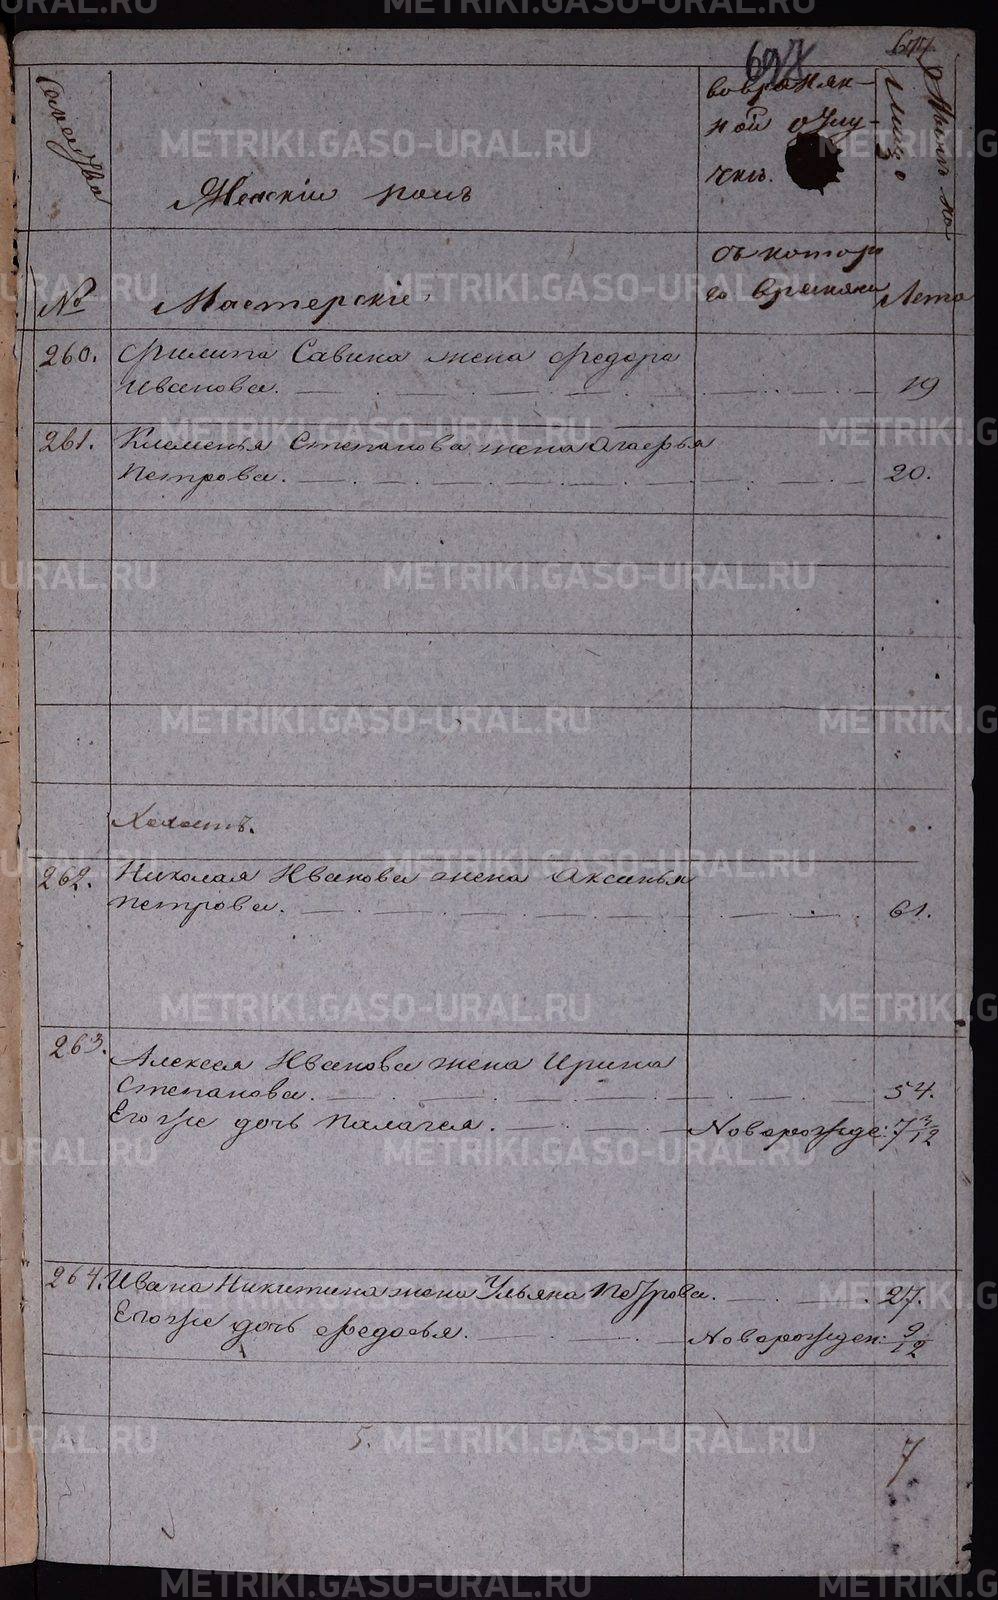 697
677
Семейства
Женскій полъ
во времян-
ной отлу-
чкѣ.
Нынѣ на
лицо
№
Мастерскіе
съ котор
го времяни
Лета
260.
Филипа Савина жена Федора
Иванова.
19
261.
Клеменья Степанова жена Агаефья
Петрова.
20.
Холостъ.
262.
Николая Иванова жена Аксинья
Петрова.
61.
263.
Алексея Иванова жена Ирина
Степанова.
54.
Его же дочь Палагея.
Новорожде: 7 3/12
264.
Ивана Никитина жена Ульяна Петрова.
27.
Его же дочь Федосья.
Новорожден: 9/12
5.
7
METRIKI.GASO-URAL.RU